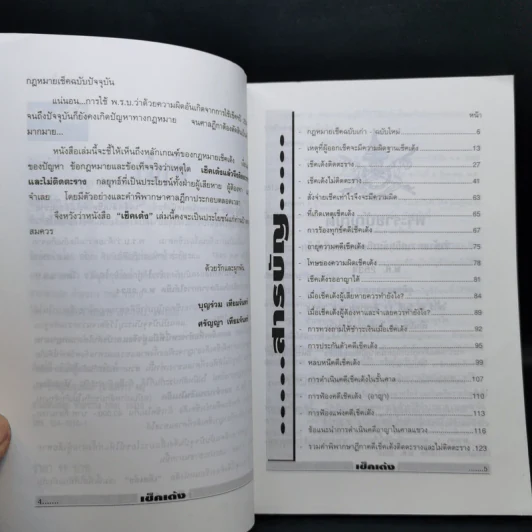 กฎหมายเช็คฉบับปัจจุบัน
แน่นอน...การใช้ พ.ร.บ.ว่าด้วยความผิดอันเกิดจากการใช้เช็คนี้
จนถึงปัจจุบันก็ยังคงเกิดปัญหาทางกฎหมาย จนศาลฎีกาต้องตัดสิน
มากมาย...
หนังสือเล่มนี้จะชี้ให้เห็นถึงหลักเกณฑ์ของกฎหมายเช็คเด้ง
ของปัญหา ข้อกฎหมายและข้อเท็จจริงว่าเหตุใด เช็คเด้งแล้วจึงติดตะราง
และไม่ติดตะราง กลยุทธ์ที่เป็นประโยชน์ทั้งฝ่ายผู้เสียหาย ผู้ต้องหา
จำเลย โดยมีตัวอย่างและคำพิพากษาศาลฎีกาประกอบตลอดเวลา
จึงหวังว่าหนังสือ "เช็คเด้ง" เล่มนี้คงจะเป็นประโยชน์แก่ท่าน
สมควร
ด้วยรักและผูกพัน
บุญร่วม เทียมจันทร์
ศรัญญา เทียมจันทร์
4.......
เช็คเด้ง
สารบัญ
หน้า
- กฎหมายเช็คฉบับเก่า - ฉบับใหม่ 6
- เหตุที่ผู้ออกเช็คจะมีความผิดฐานเช็คเด้ง 13
- เช็คเด้งติดตะราง 27
- เช็คเด้งไม่ติดตะราง 41
- สั่งจ่ายเช็คเท่าไรจึงจะมีความผิด 63
- ที่เกิดเหตุเช็คเด้ง 65
- การร้องทุกข์คดีเช็คเด้ง 67
- อายุความคดีเช็คเด้ง 75
- โทษของความผิดเช็คเด้ง 78
- เช็คเด้งรออาญาได้ 81
- เมื่อเช็คเด้งผู้เสียหายควรทำยังไง? 84
- เมื่อเช็คเด้งผู้ต้องหาและจำเลยควรทำยังไง? 89
- การทวงถามให้ชำระเงินเมื่อเช็คเด้ง 92
- การประกันตัวคดีเช็คเด้ง 95
- หลบหนีคดีเช็คเด้ง 99
- การดำเนินคดีเช็คเด้งในชั้นศาล 107
- การฟ้องคดีเช็คเด้ง (อาญา) 110
- การฟ้องแพ่งคดีเช็คเด้ง 113
- ข้อแนะนำการดำเนินคดีอาญาในศาลแขวง 116
- รวมคำพิพากษาฎีกาคดีเช็คเด้งติดตะรางและไม่ติดตะราง 123
เช็คเด้ง
.......5